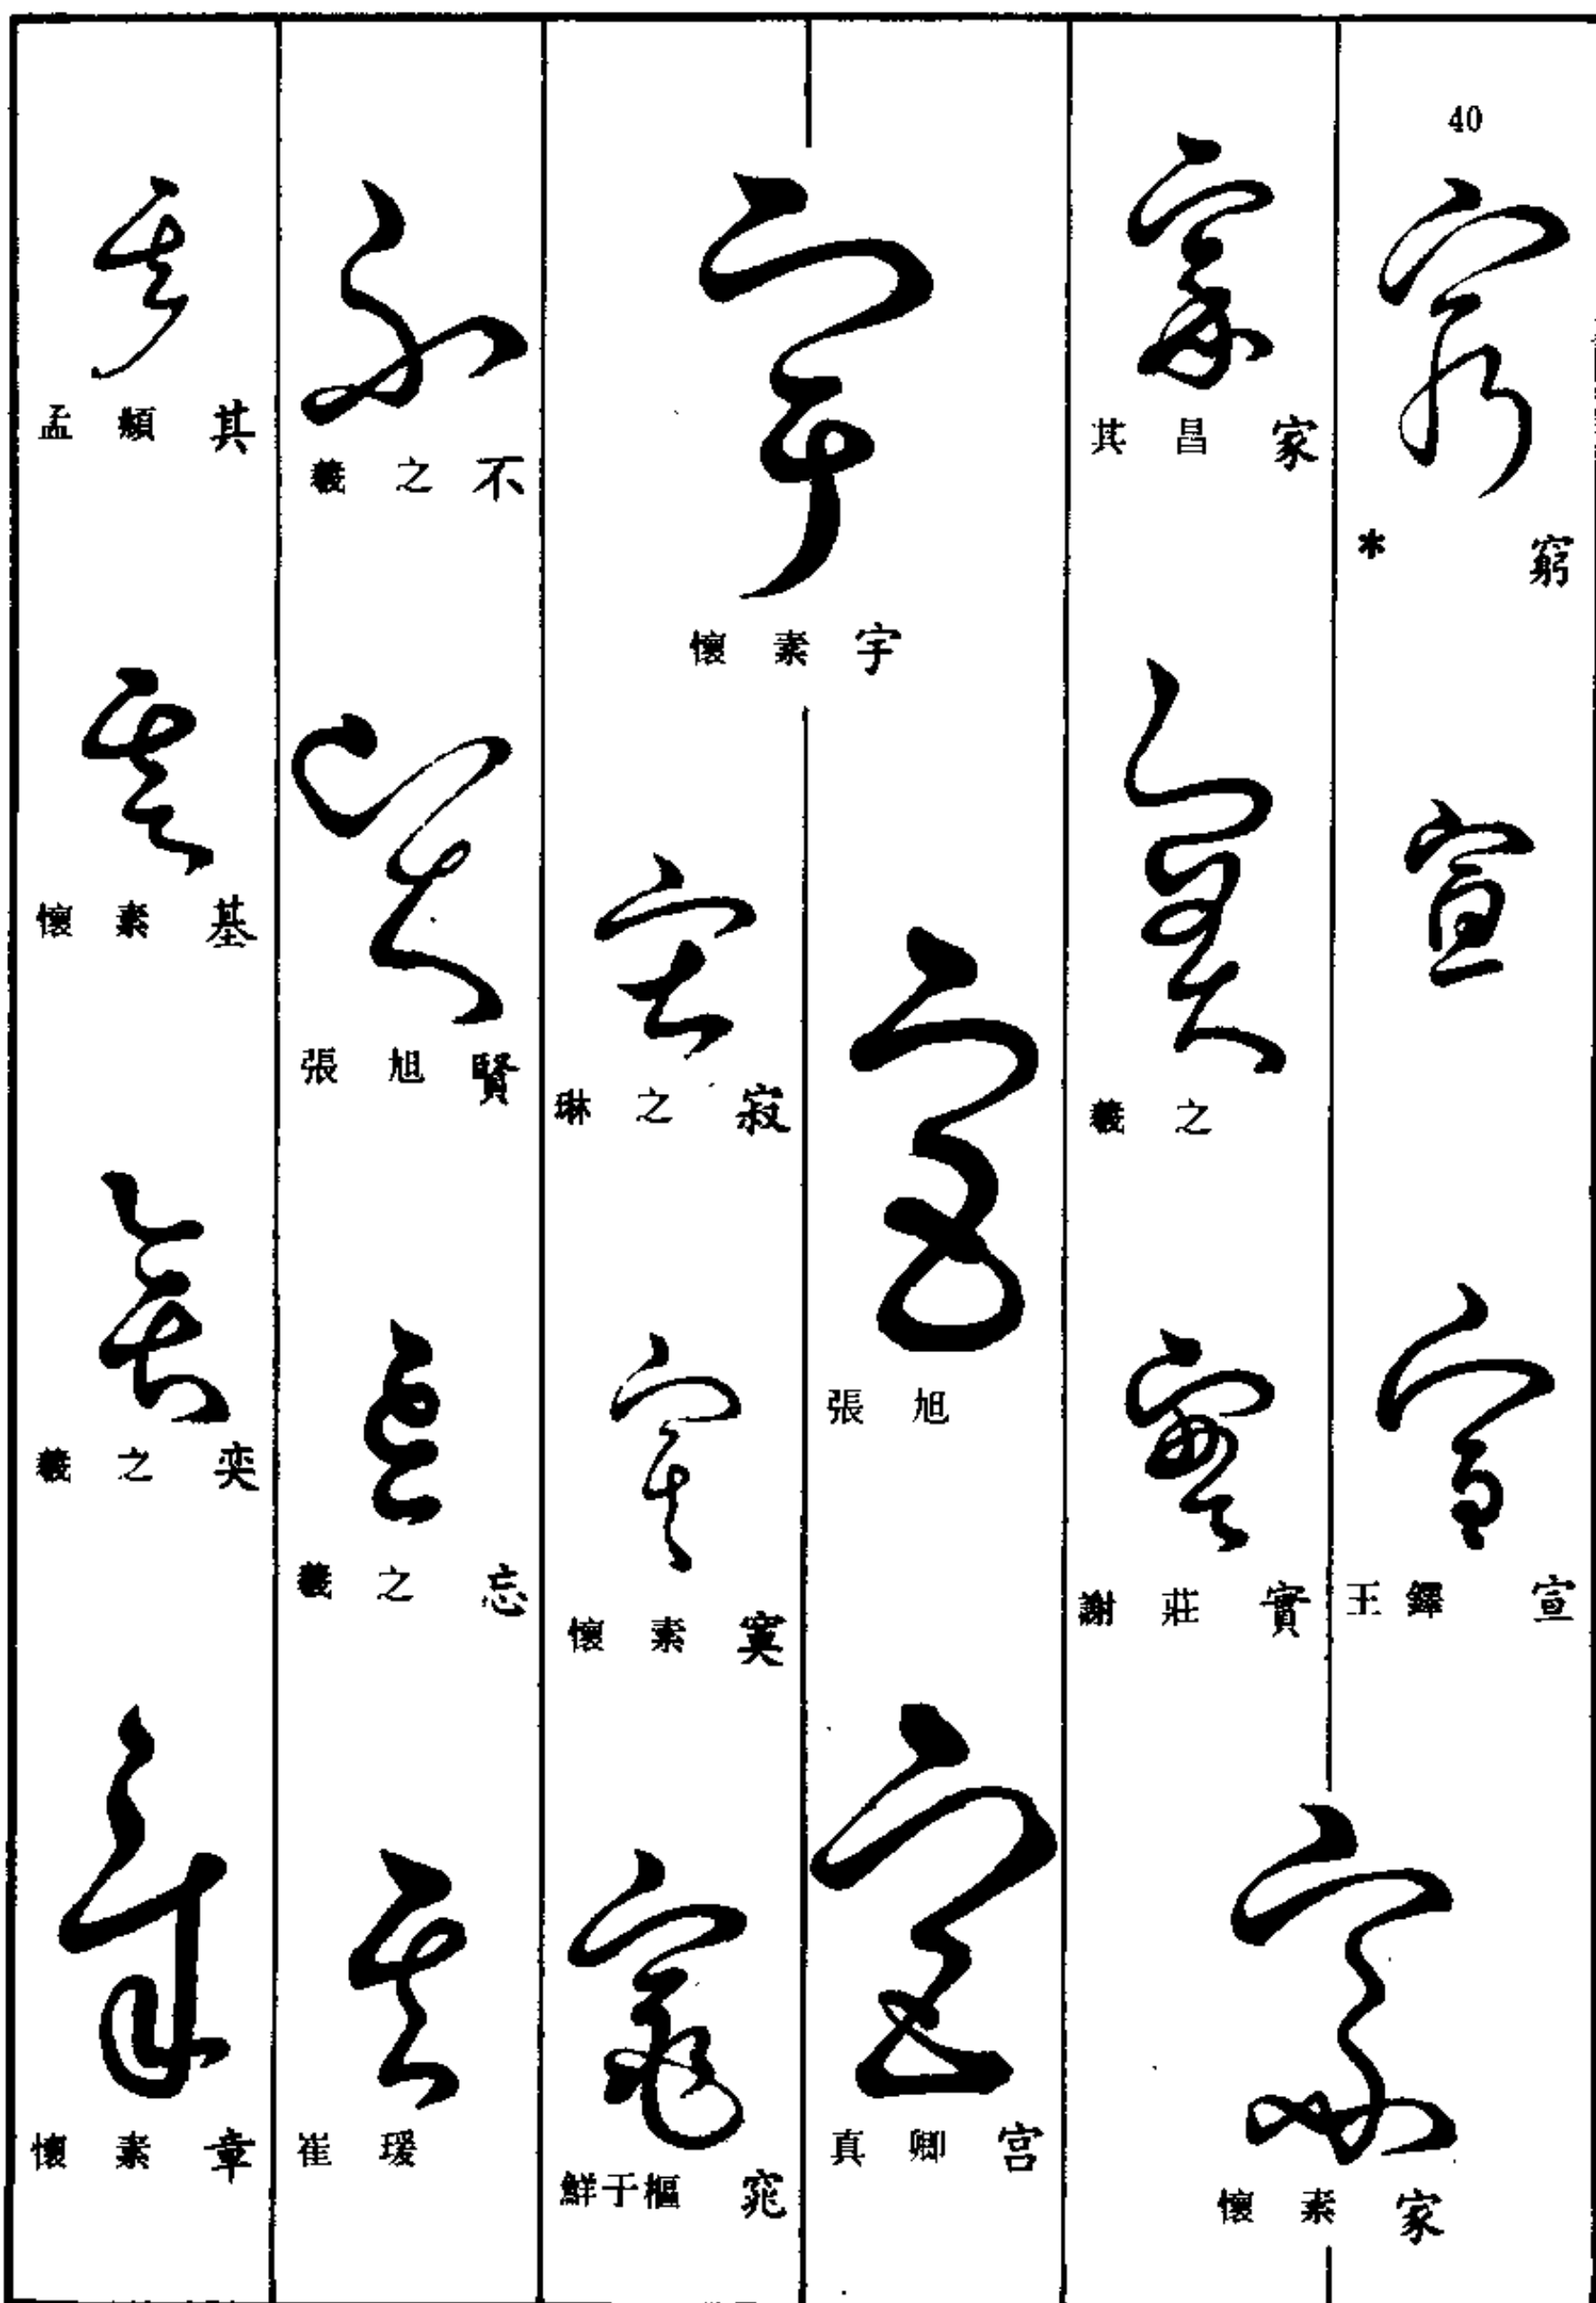 40
* 窮
王鐸 宣
懷素 家
其昌 家
羲之
謝莊 實
懷素 宇
張旭
真卿 宮
琳之 寂
懷素 寞
鮮于樞 窕
羲之 不
張旭 賢
羲之 忘
崔瑗
孟頫 其
懷素 基
羲之 奕
懷素 章